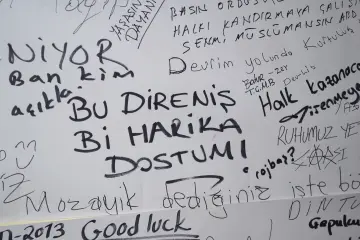 YAŞASIN
DAYANI
BASIN ORDUSU
HALKI KANDIRMAYA ÇALIŞ
SENMİ MÜSLÜMANSIN ARD
NİYOR
Ban kim
açıkla.
Devrim yolunda Kurtuluş
Halk kazanaca
Direnmeye
BU DİRENİŞ
Bİ HARİKA
DOSTUM!
RUHUMUZ YE
rojbaş?
Mozayik dediğiniz işte bi
DİN TÜ
Gapuku
-2013 Good luck